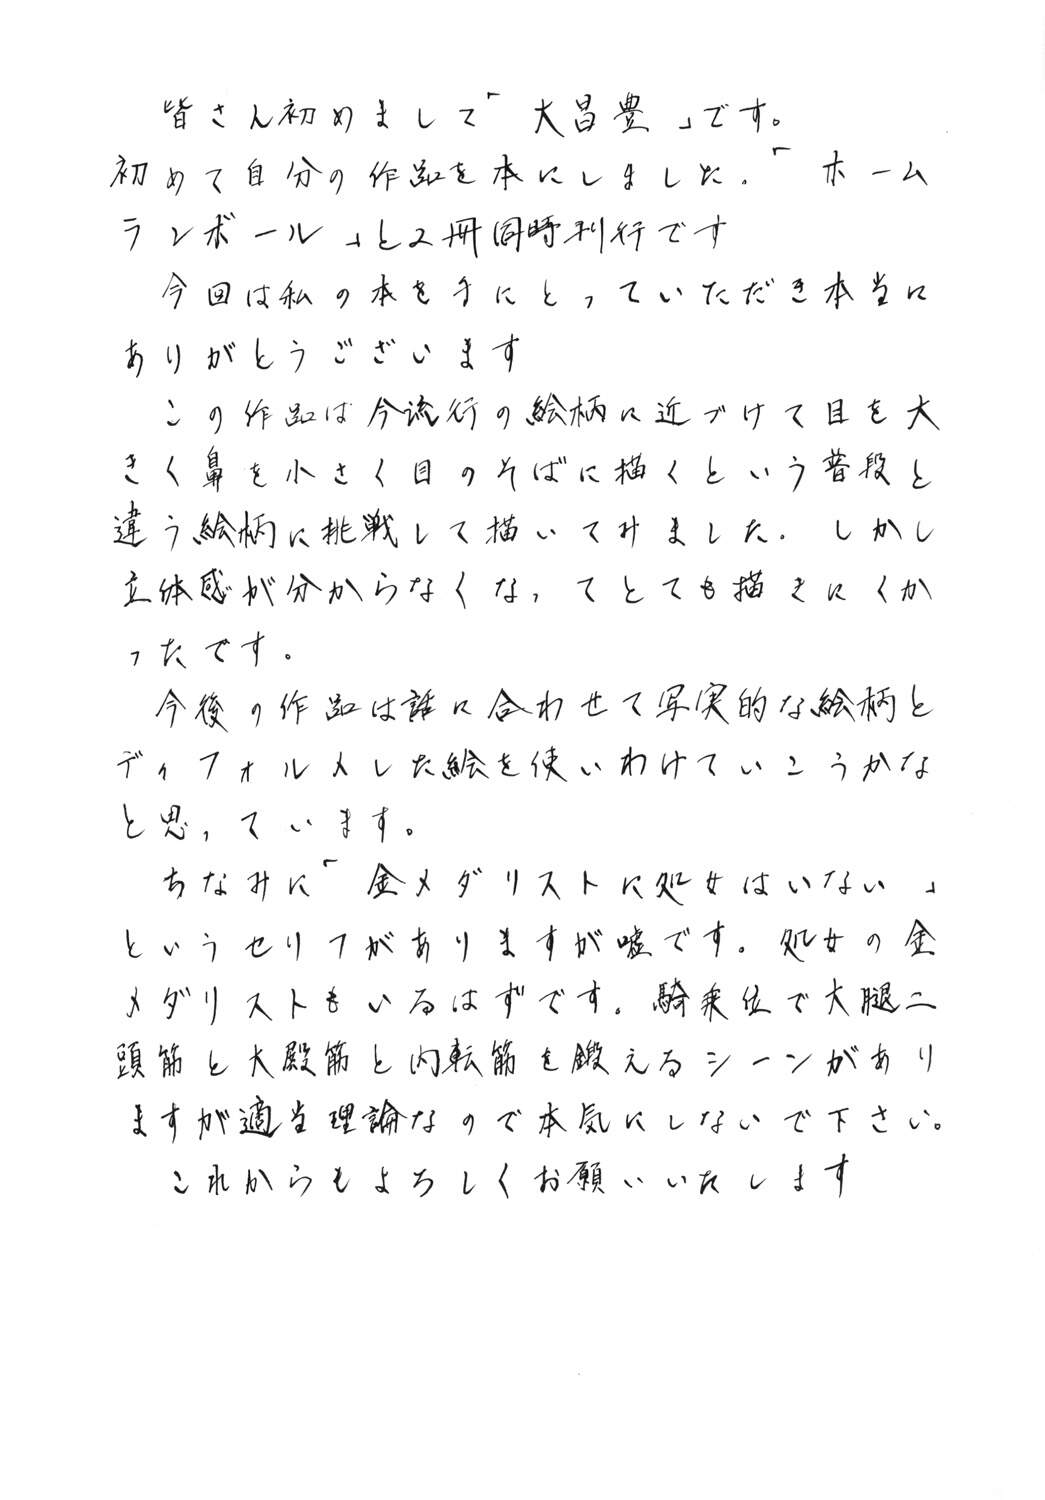 皆さん初めまして「大昌豊」です。
初めて自分の作品を本にしました.「ホーム
ランボール」と2冊同時刊行です
今回は私の本を手にとっていただき本当に
ありがとうございます
この作品は今流行の絵柄に近づけて目を大
きく鼻を小さく目のそばに描くという普段と
違う絵柄に挑戦して描いてみました.しかし
立体感が分からなくなってとても描きにくか
ったです。
今後の作品は話に合わせて写実的な絵柄と
ディフォルメした絵を使いわけていこうかな
と思っています。
ちなみに「金メダリストに処女はいない」
というセリフがありますが嘘です。処女の金
メダリストもいるはずです。騎乗位で大腿二
頭筋と大殿筋と内転筋を鍛えるシーンがあり
ますが適当理論なので本気にしないで下さい。
これからもよろしくお願いいたします